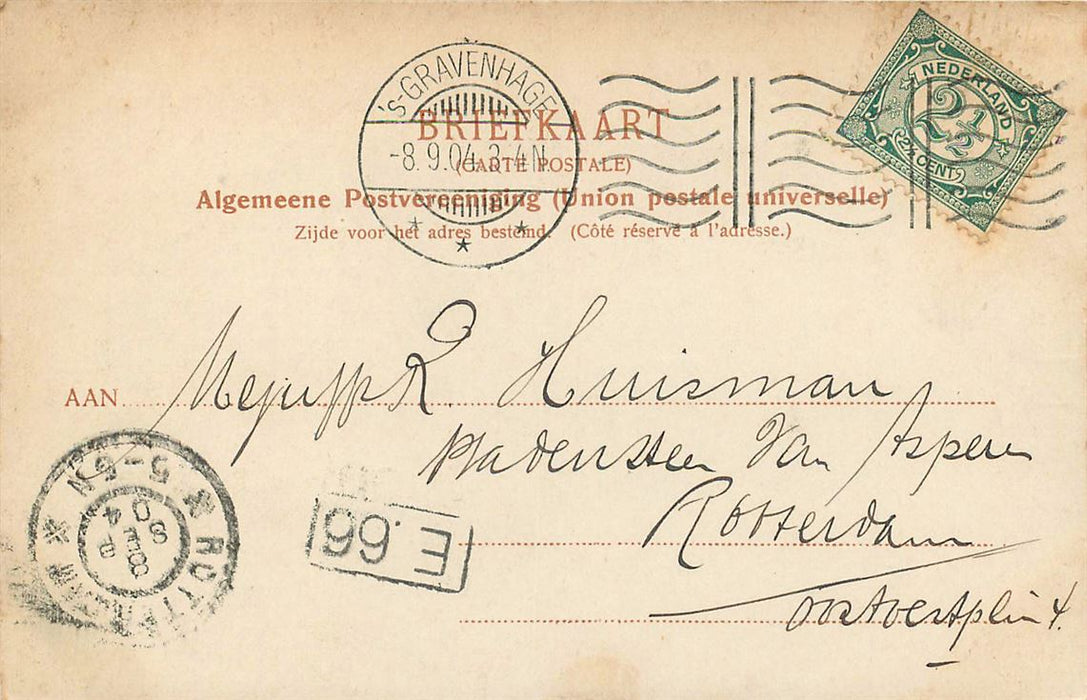 's-GRAVENHAGE
-8.9.04.3-4N.
NEDERLAND
2½
2½ CENT
BRIEFKAART
(CARTE POSTALE)
Algemeene Postvereeniging (Union postale universelle)
Zijde voor het adres bestemd. (Côté réservé à l'adresse.)
AAN Mejuff R. Huisman
Van Asperen
Rotterdam
Oostvestplein 4.
ROTTERDAM
5-6N
8 SEP
04
E.66